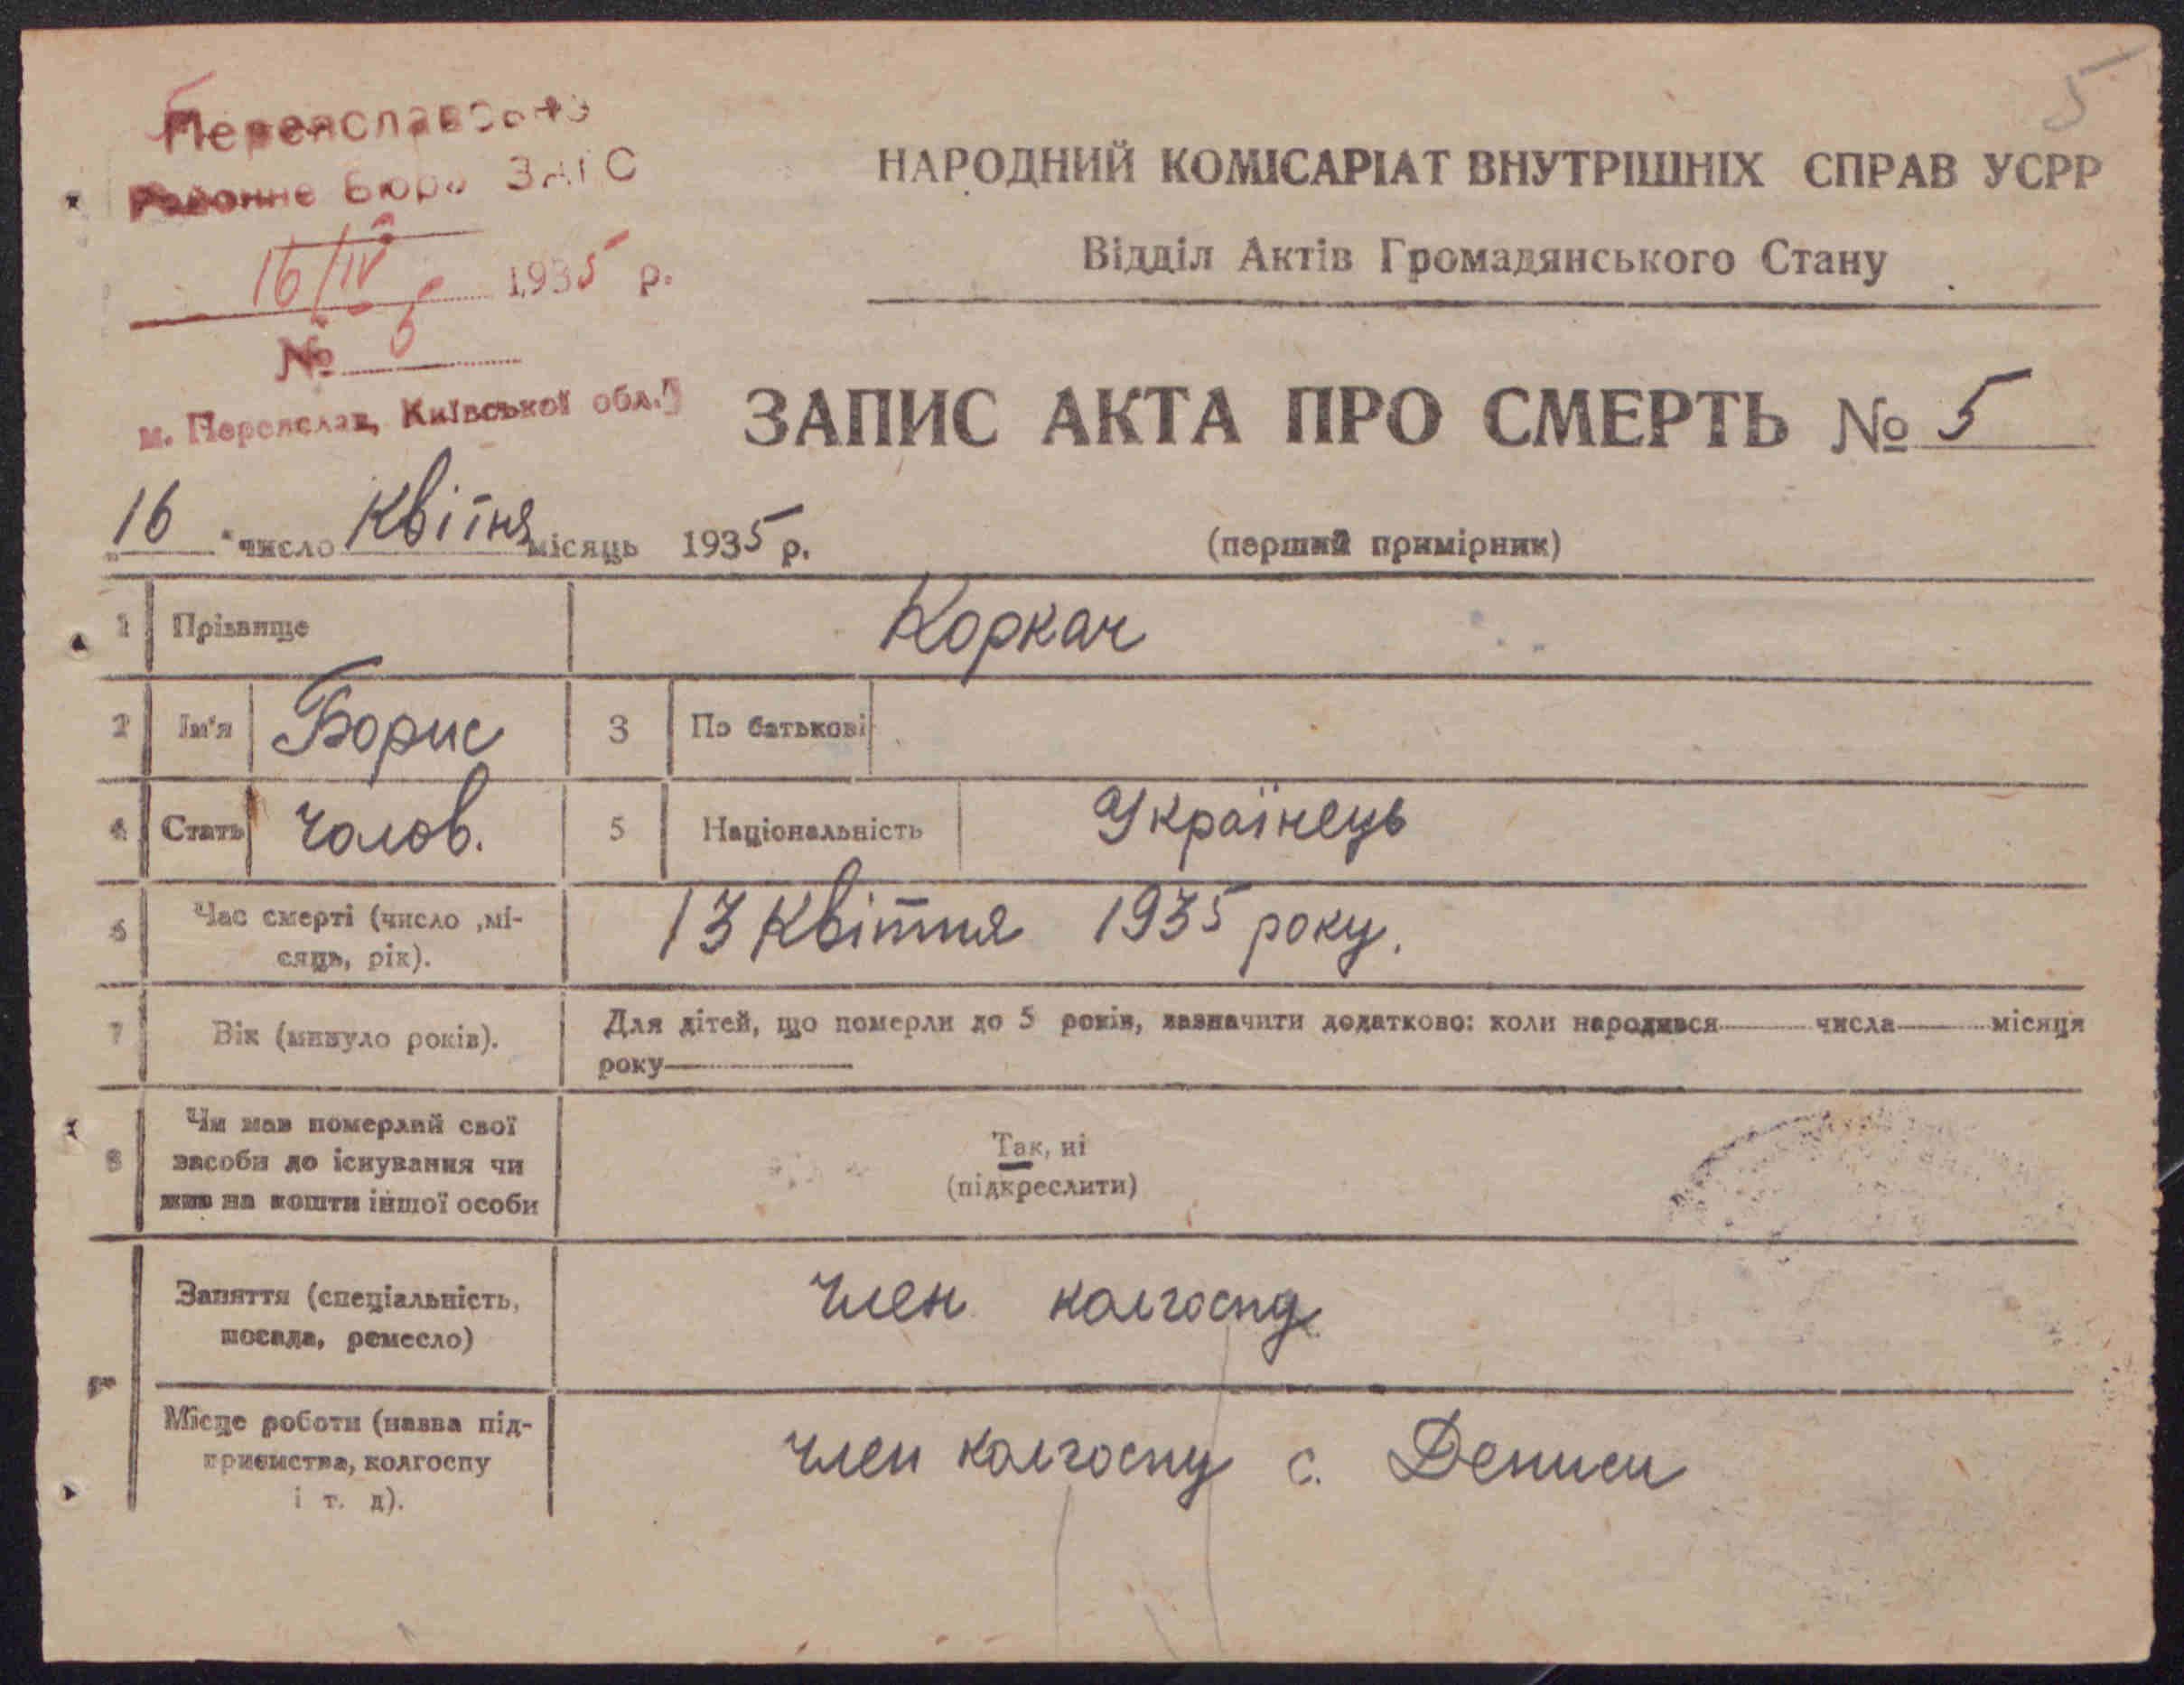 5
Переяславське
Районне Бюро ЗАГС
16/IV 1935 р.
№ 5
м. Переяслав, Київської обл.
НАРОДНИЙ КОМІСАРІАТ ВНУТРІШНІХ СПРАВ УСРР
Відділ Актів Громадянського Стану
ЗАПИС АКТА ПРО СМЕРТЬ № 5
„16“ число Квітня місяць 1935 р.
(перший примірник)
1 Прізвище Коркач
2 Ім'я Борис 3 По батькові
4 Стать чолов. 5 Національність Українець
6 Час смерті (число ,мі-
сяць, рік). 13 Квітня 1935 року.
7 Вік (минуло років). Для дітей, що померли до 5 років, зазначити додатково: коли народився числа місяця
року
8 Чи мав померлий свої
засоби до існування чи
жив на кошти іншої особи
Так, ні
(підкреслити)
Заняття (спеціальність,
посада, ремесло)
член колгоспу
Місце роботи (назва під-
приємства, колгоспу
і т. д).
член колгоспу с. Дениси